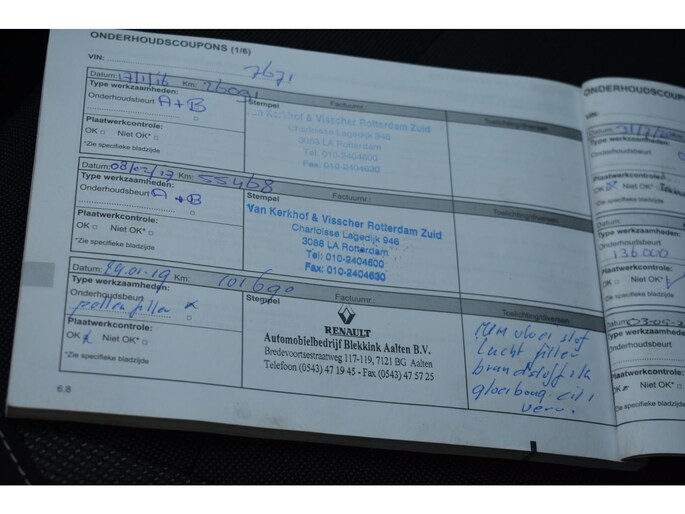 ONDERHOUDSCOUPONS (1/6)
VIN: 7671
Datum: 17/1/16 Km: 26091
Type werkzaamheden: Stempel Factuurnr.: Toelichting/diversen
Onderhoudsbeurt A+B
Van Kerkhof & Visscher Rotterdam Zuid
Charloisse Lagedijk 946
3088 LA Rotterdam
Tel: 010-2404600
Fax: 010-2404630
Plaatwerkcontrole:
OK □ Niet OK* □
*Zie specifieke bladzijde
Datum: 08/02/17 Km: 55468
Type werkzaamheden: Stempel Factuurnr.: Toelichting/diversen
Onderhoudsbeurt A+B
Van Kerkhof & Visscher Rotterdam Zuid
Charloisse Lagedijk 946
3088 LA Rotterdam
Tel: 010-2404600
Fax: 010-2404630
Plaatwerkcontrole:
OK □ Niet OK* □
*Zie specifieke bladzijde
Datum: 29.01.19 Km: 101690
Type werkzaamheden: Stempel Factuurnr.: Toelichting/diversen
Onderhoudsbeurt x
pollen filter
RENAULT
Automobielbedrijf Blekkink Aalten B.V.
Bredevoortsestraatweg 117-119, 7121 BG Aalten
Telefoon (0543) 47 19 45 - Fax (0543) 47 57 25
vloeistof
Lucht filter
Plaatwerkcontrole:
OK x Niet OK* □
*Zie specifieke bladzijde
6.8
ONDERHOUDSCOUPO
VIN:
Datum:
Type werkzaamheden:
Onderhoudsbeurt
Plaatwerkcontrole:
OK Niet OK*
*Zie specifieke bladzijde
Type werkzaamheden:
Onderhoudsbeurt
136000
Plaatwerkcontrole:
OK □ Niet OK*
Zie specifieke bladzijde
Datum: 03-05-2
Type werkzaamheden:
Onderhoudsbeurt
Plaatwerkcontrole:
OK Niet OK* □
*Zie specifieke bladzijde